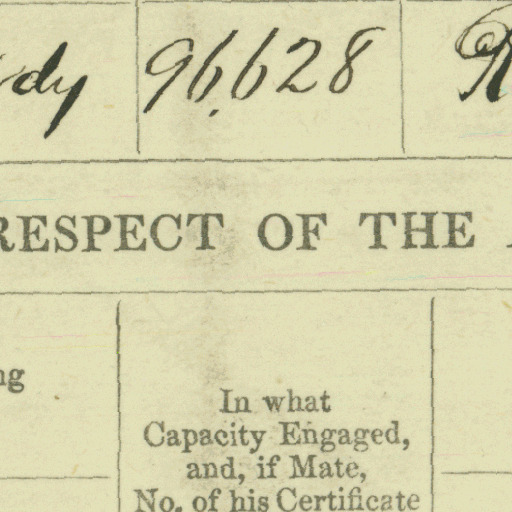 dy 96,628
RESPECT OF THE
ng
In what
Capacity Engaged,
and, if Mate,
No. of his Certificate